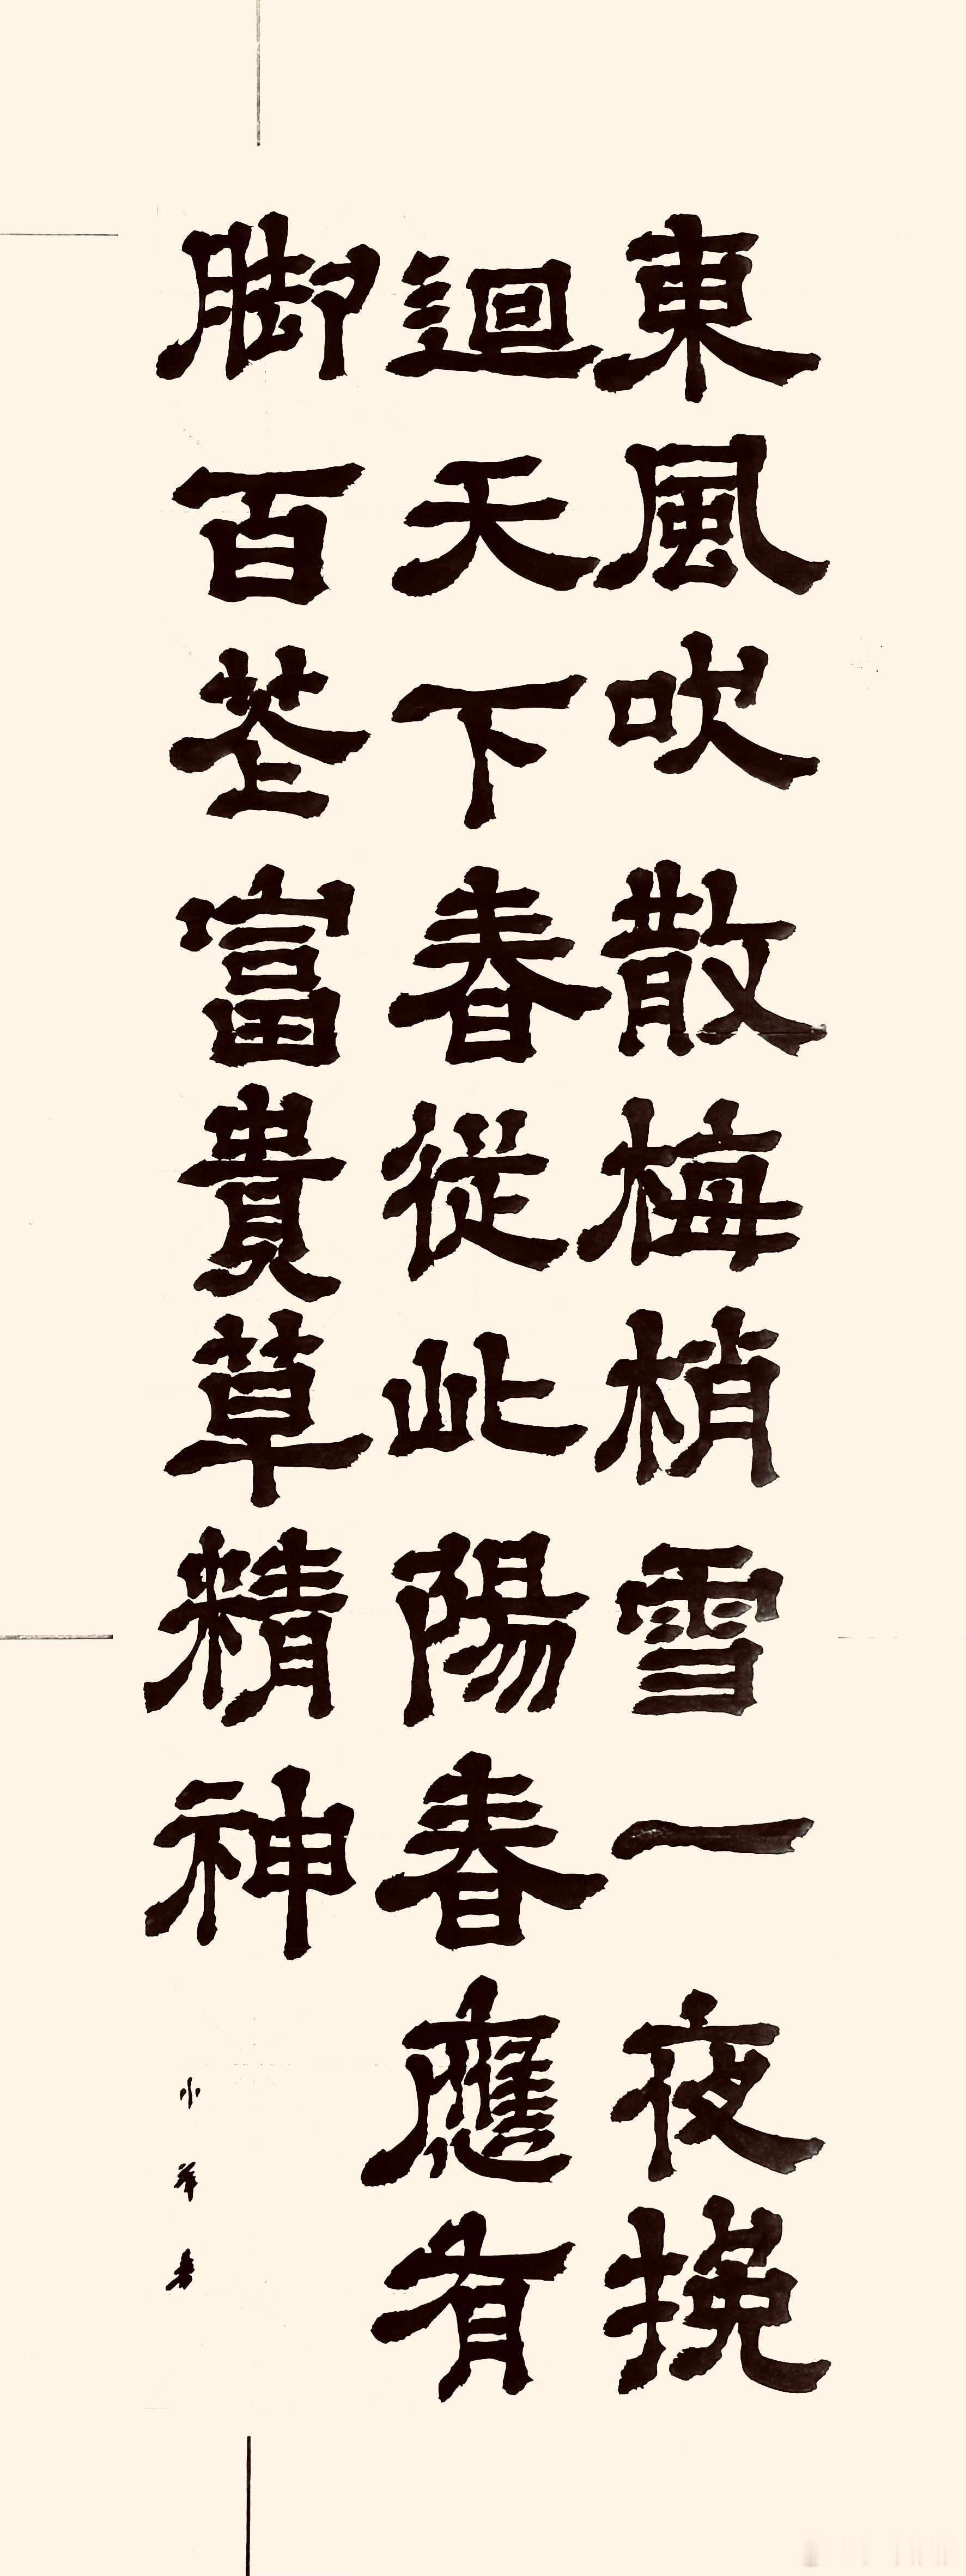 東風吹散梅梢雪一夜挽
迴天下春從此陽春應有
脚百花富貴草精神
小